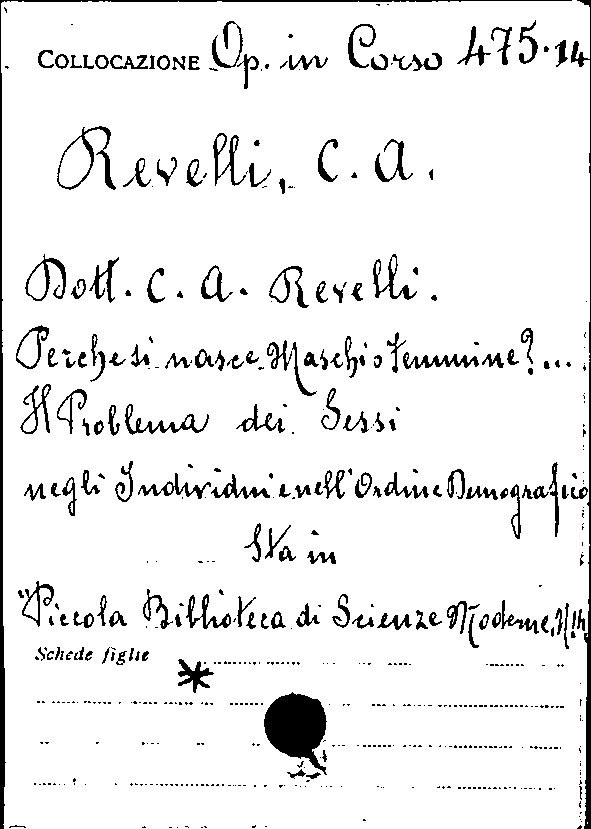 COLLOCAZIONE Op. in Corso 475.14
Revelli, C. A.
Dott. C. A. Revelli.
Perche si nasce Maschi o Femmine?...
Il Problema dei Sessi
negli Individui e nell'Ordine Demografico
Sta in
"Piccola Biblioteca di Scienze Moderne,
Schede figlie
*